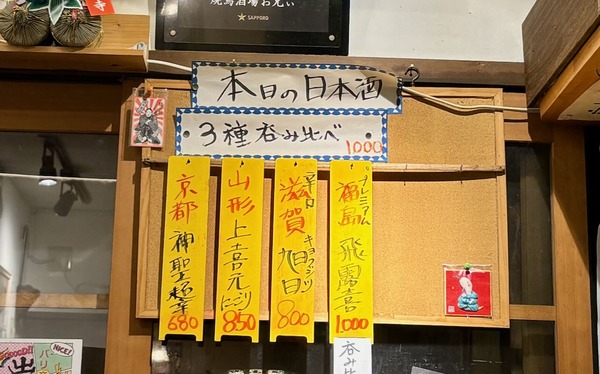 焼鳥酒場お元い
SAPPORO
本日の日本酒
3種呑み比べ
1000
プレミアム
福島 飛露喜
1000
辛口
滋賀 旭日
キョクジツ
800
山形 上喜元
にごり
850
京都 神聖
680
呑み比
NICE!